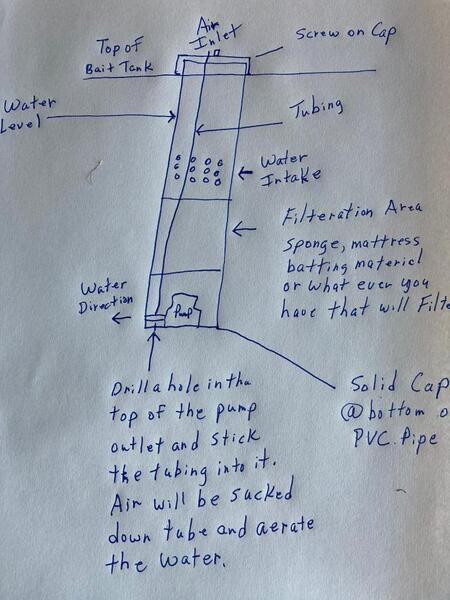 Air
Inlet
Top of
Bait Tank
Screw on Cap
Water
Level
Tubing
Water
Intake
Filteration Area
sponge, mattress
batting material
or what ever you
have that will Filte
Water
Direction
Pump
Solid Cap
@ bottom o
PVC. Pipe
Drill a hole in tha
top of the pump
outlet and stick
the tubing into it.
Air will be sucked
down tube and aerate
the water.